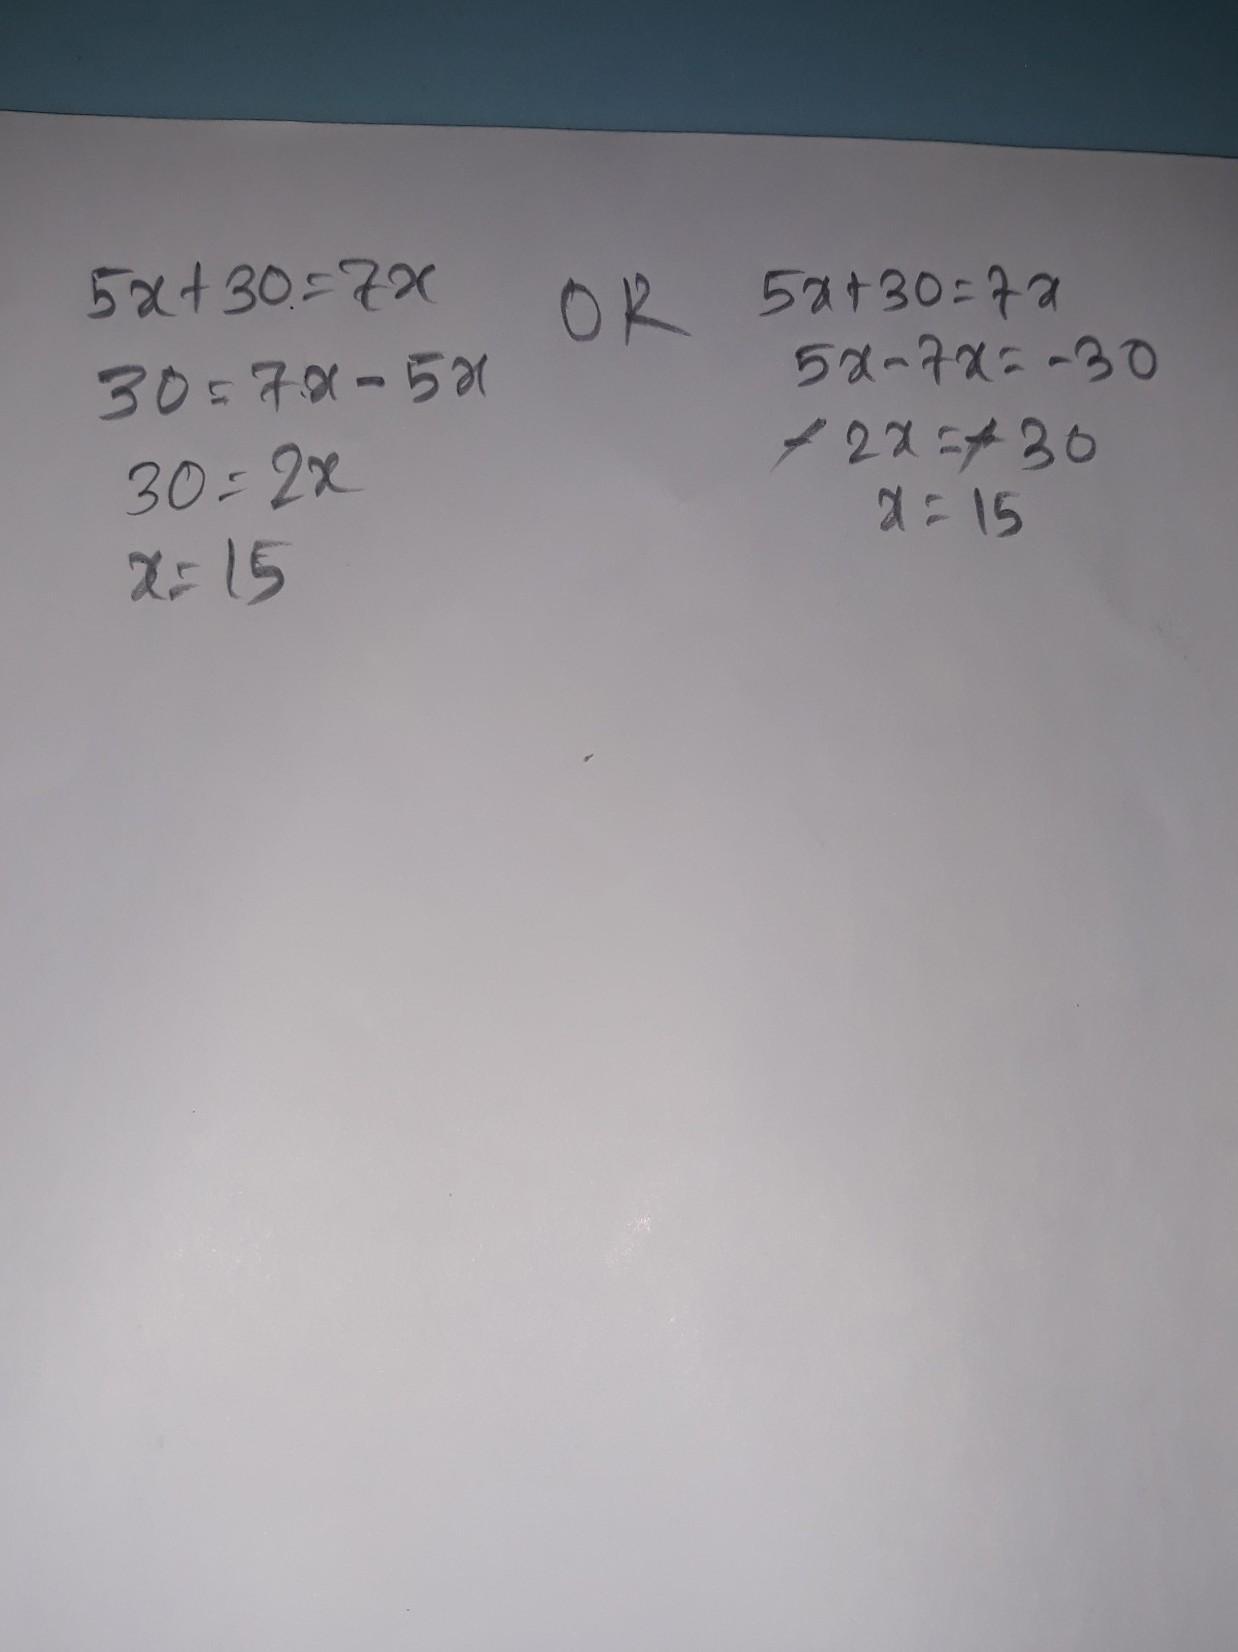 5x+30=7x
30=7x-5x
30=2x
x=15
OR
5x+30=7x
5x-7x=-30
-2x=-30
x=15